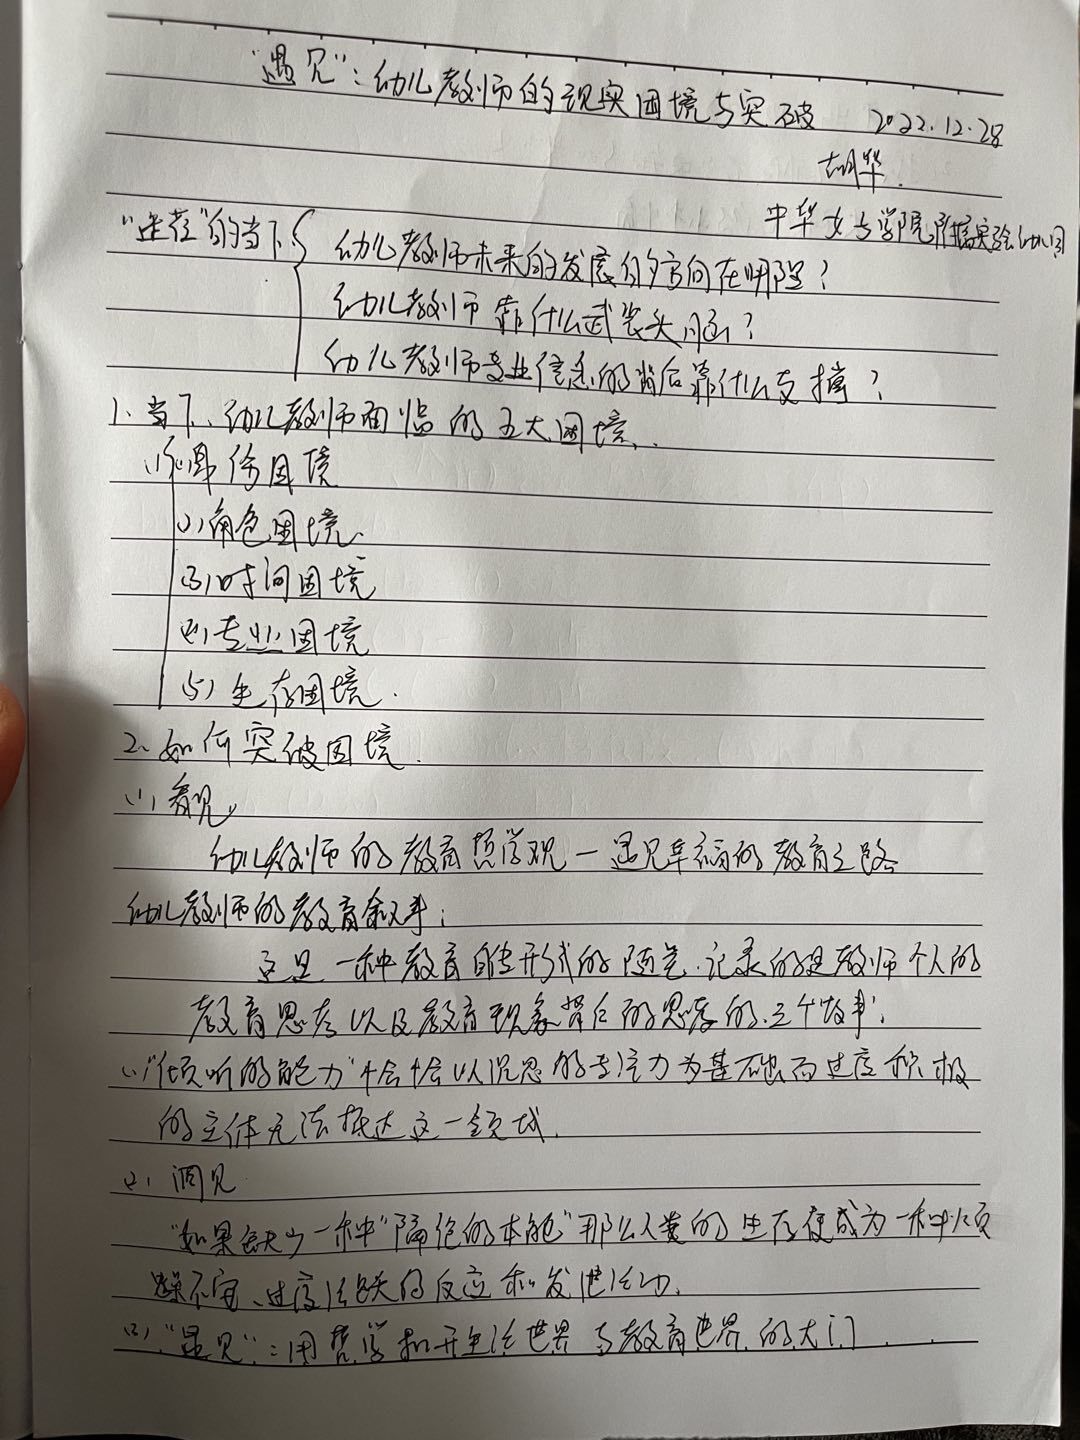 “遇见”：幼儿教师的现实困境与突破 2022.12.28
胡华.
中华女子学院附属实验幼儿园
“迷茫”的当下
幼儿教师未来的发展的方向在哪里？
幼儿教师靠什么武装头脑？
幼儿教师专业信念的背后靠什么支撑？
1、当下、幼儿教师面临的五大困境.
(1)关系困境
(2)角色困境.
(3)时间困境
(4)专业困境
(5)生存困境.
2、如何突破困境.
(1)看见
幼儿教师的教育哲学观—遇见幸福的教育之路
幼儿教师的教育叙事：
这是一种教育形式的随笔.记录的是教师个人的
教育思考以及教育现象背后的思考的.三个故事；
(1)“倾听的能力”恰恰以沉思的专注力为基础而过度积极
的主体无法抵达这一领域.
(2)洞见
“如果缺少一种“隔绝的本能”那么人类的生存便成为一种烦
躁不安、过度活跃的反应和发泄活动.
(3)“遇见”：用哲学打开生活世界与教育世界的大门...